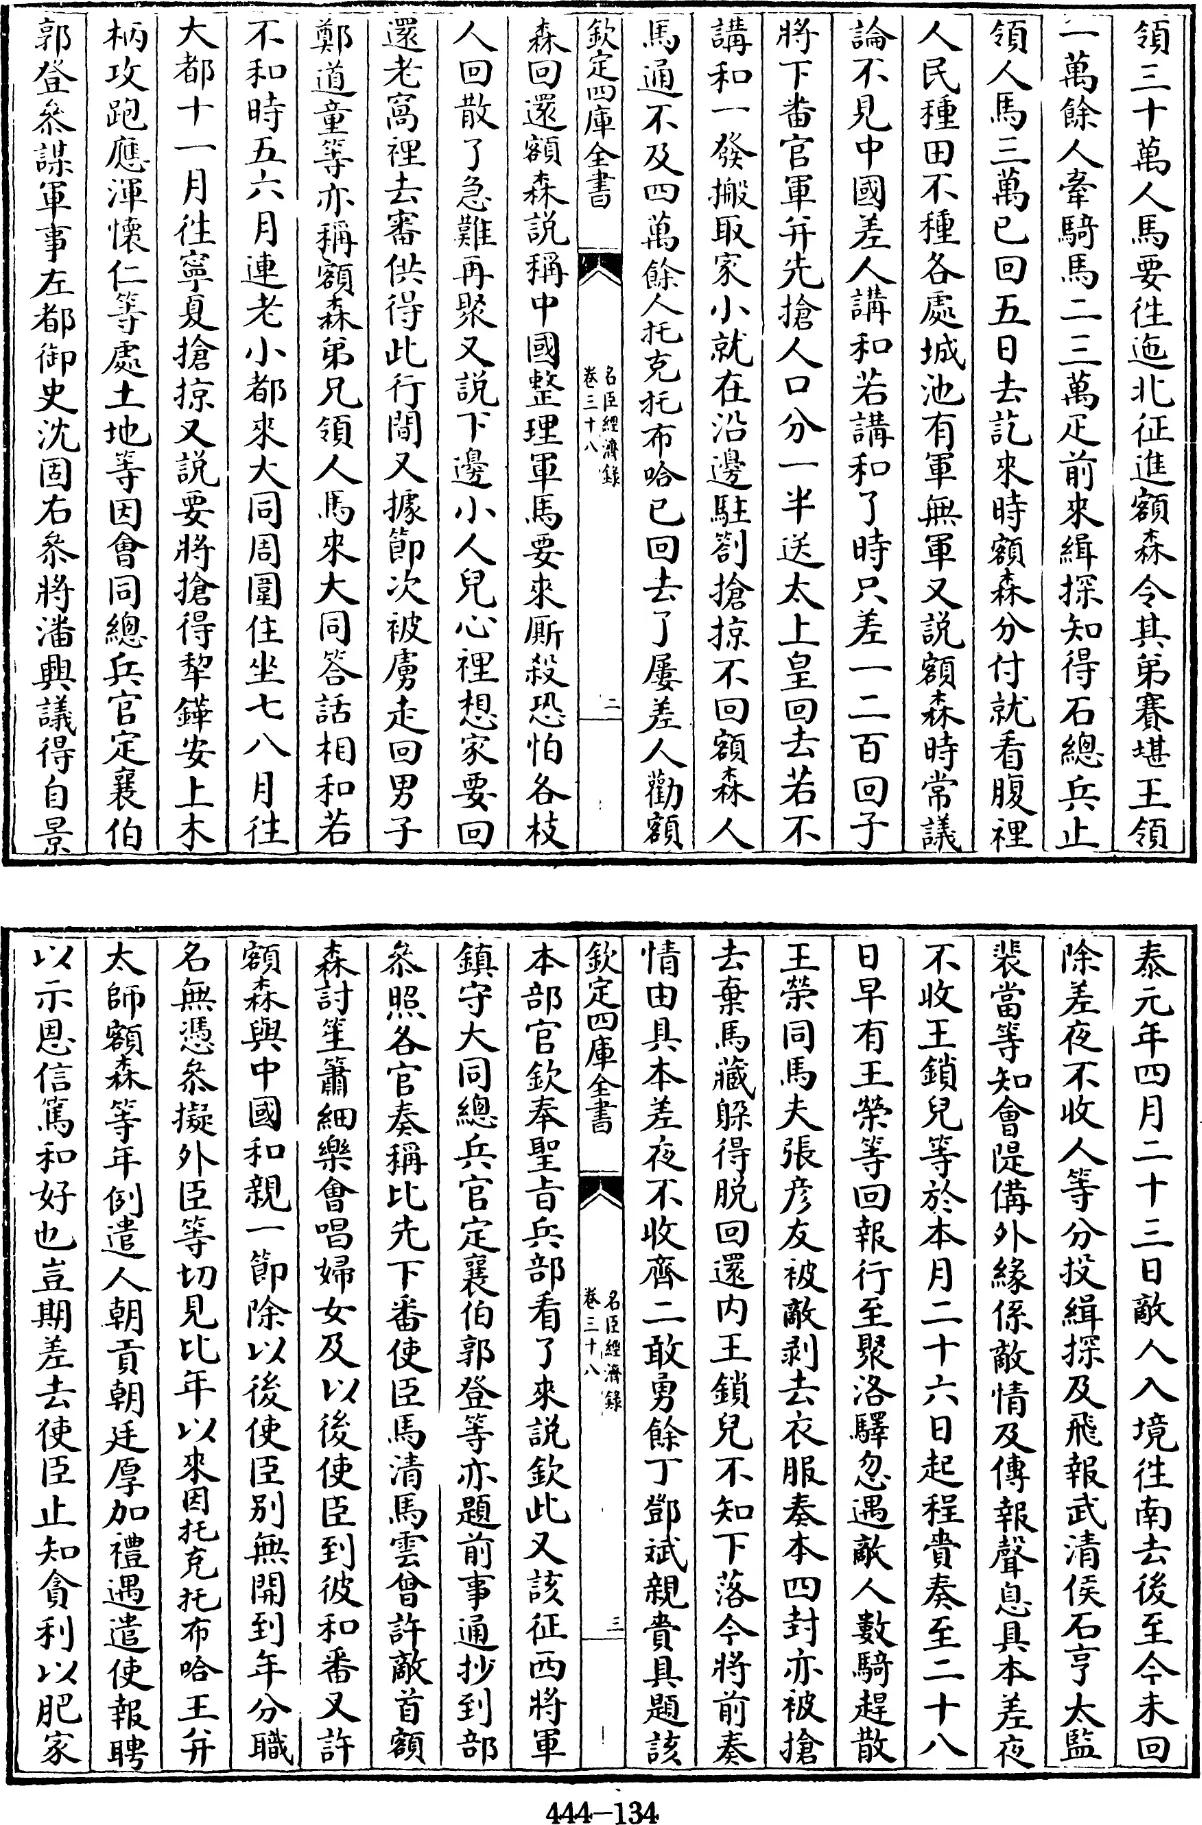 領三十萬人馬要徃迤北征進額森令其弟賽堪王領
一萬餘人牽騎馬二三萬疋前來緝探知得石總兵止
領人馬三萬已回五日去訖來時額森分付就看腹裡
人民種田不種各處城池有軍無軍又説額森時常議
論不見中國差人講和若講和了時只差一二百回子
將下畨官軍并先搶人口分一半送太上皇回去若不
講和一發搬取家小就在沿邊駐劄搶掠不回額森人
馬通不及四萬餘人托克托布哈已回去了屢差人勸額
欽定四庫全書
名臣經濟録
卷三十八
二
森回還額森説稱中國整理軍馬要來厮殺恐怕各枝
人回散了急難再聚又説下邊小人兒心裡想家要回
還老窩裡去審供得此行間又據節次被虜走回男子
鄭道童等亦稱額森弟兄領人馬來大同答話相和若
不和時五六月連老小都來大同周圍住坐七八月徃
大都十一月徃寧夏搶掠又説要將搶得犂鏵安上木
柄攻跑應渾懷仁等處土地等因會同總兵官定襄伯
郭登叅謀軍事左都御史沈固右叅將潘興議得自景
泰元年四月二十三日敵人入境徃南去後至今未回
除差夜不收人等分投緝探及飛報武清侯石亨太監
裴當等知會隄備外緣係敵情及傳報聲息具本差夜
不收王鎖兒等於本月二十六日起程賫奏至二十八
日早有王榮等回報行至聚洛驛忽遇敵人數騎趕散
王榮同馬夫張彦友被敵剥去衣服奏本四封亦被搶
去棄馬藏躲得脱回還内王鎖兒不知下落今將前奏
情由具本差夜不收齊二敢勇餘丁鄧斌親賫具題該
欽定四庫全書
名臣經濟録
卷三十八
三
本部官欽奉聖旨兵部看了來説欽此又該征西將軍
鎮守大同總兵官定襄伯郭登等亦題前事通抄到部
叅照各官奏稱比先下番使臣馬清馬雲曾許敵首額
森討笙簫細樂會唱婦女及以後使臣到彼和番又許
額森與中國和親一節除以後使臣别無開到年分職
名無憑叅擬外臣等切見比年以來因托克托布哈王并
太師額森等年例遣人朝貢朝廷厚加禮遇遣使報聘
以示恩信篤和好也豈期差去使臣止知貪利以肥家
444-134